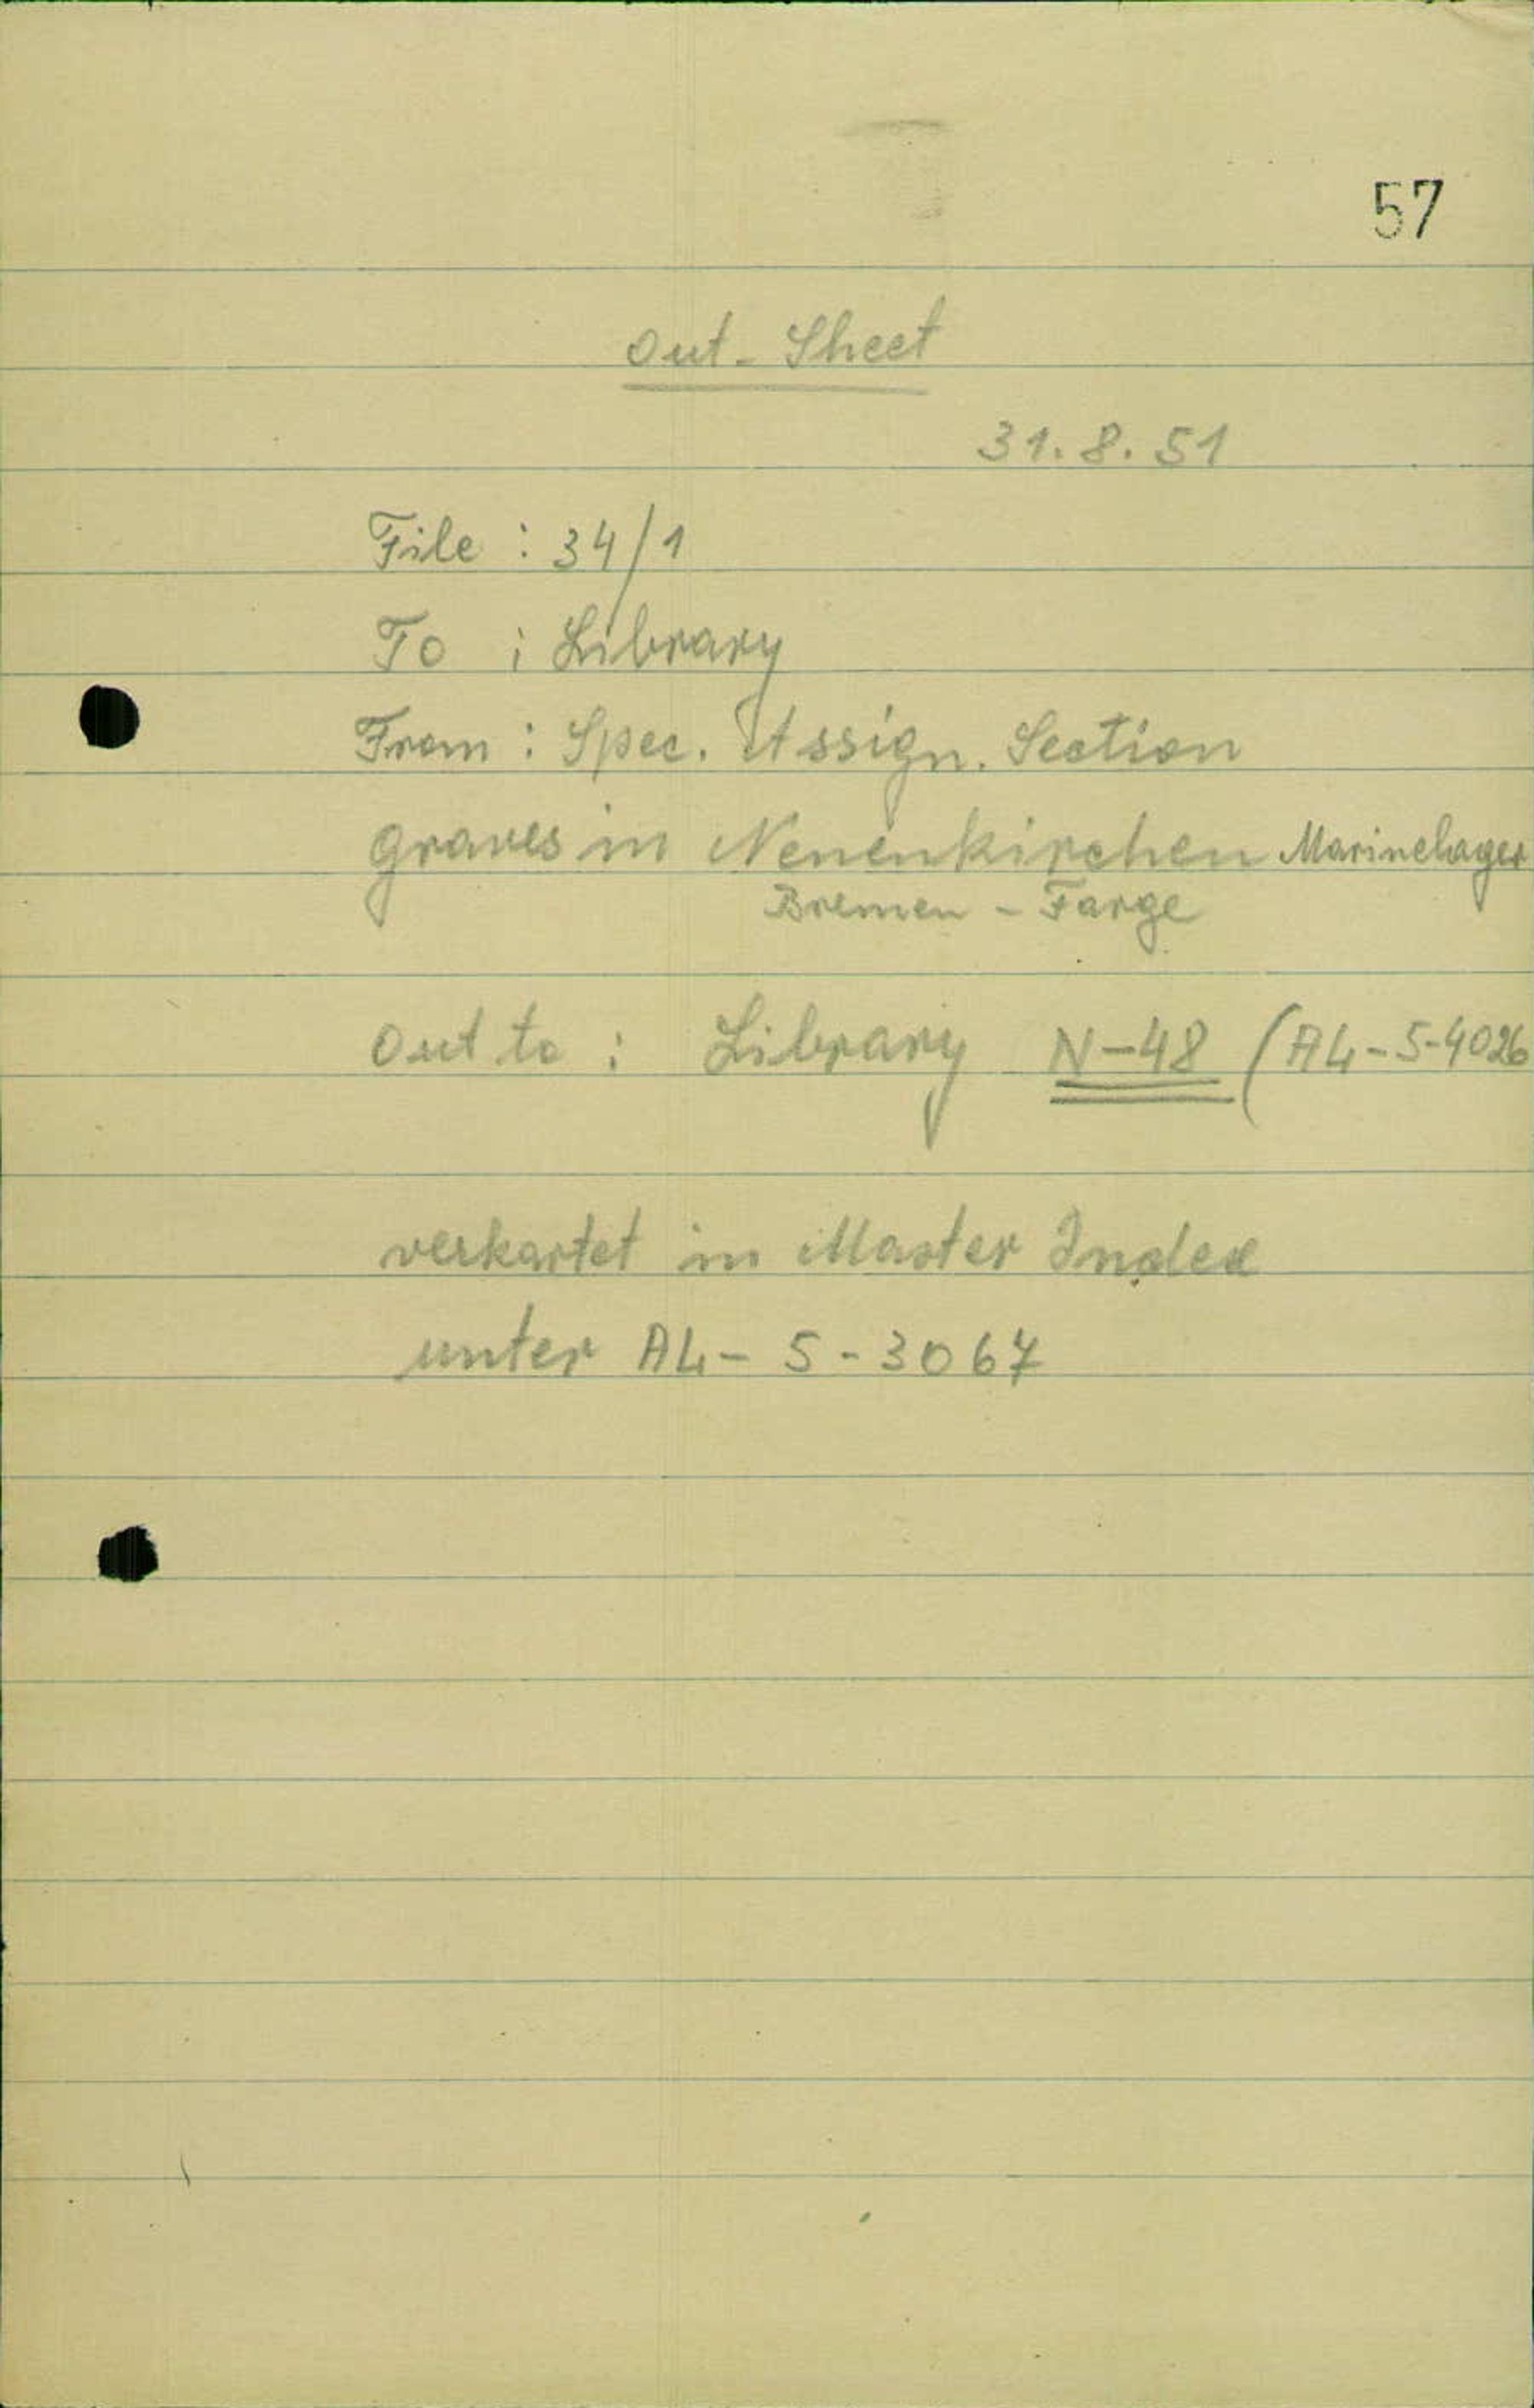 57
Out-Sheet
31.8.51
File : 34/1
To : Library
From : Spec. Assign. Section
Graves in Nenenkirchen Marinelager
Bremen - Farge
Out to : Library N-48 (AL-5-4026
verkartet im Master Index
unter AL- 5-3067